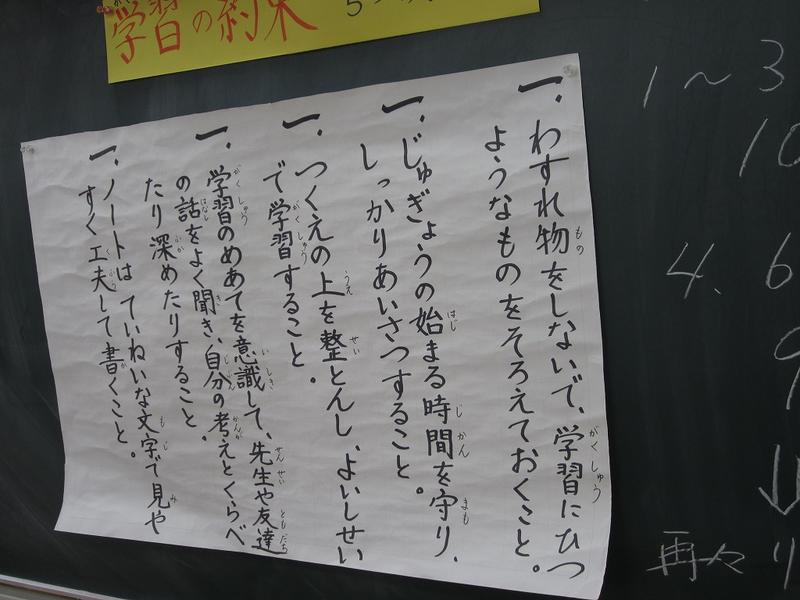 学習の約束
一、わすれ物をしないで、学習にひつ
ようなものをそろえておくこと。
一、じゅぎょうの始まる時間を守り、
しっかりあいさつすること。
一、つくえの上を整とんし、よいしせい
で学習すること。
一、学習のめあてを意識して、先生や友達
の話をよく聞き、自分の考えとくらべ
たり深めたりすること。
一、ノートはていねいな文字で見や
すく工夫して書くこと。
1〜3
10
4. 6
9
再々